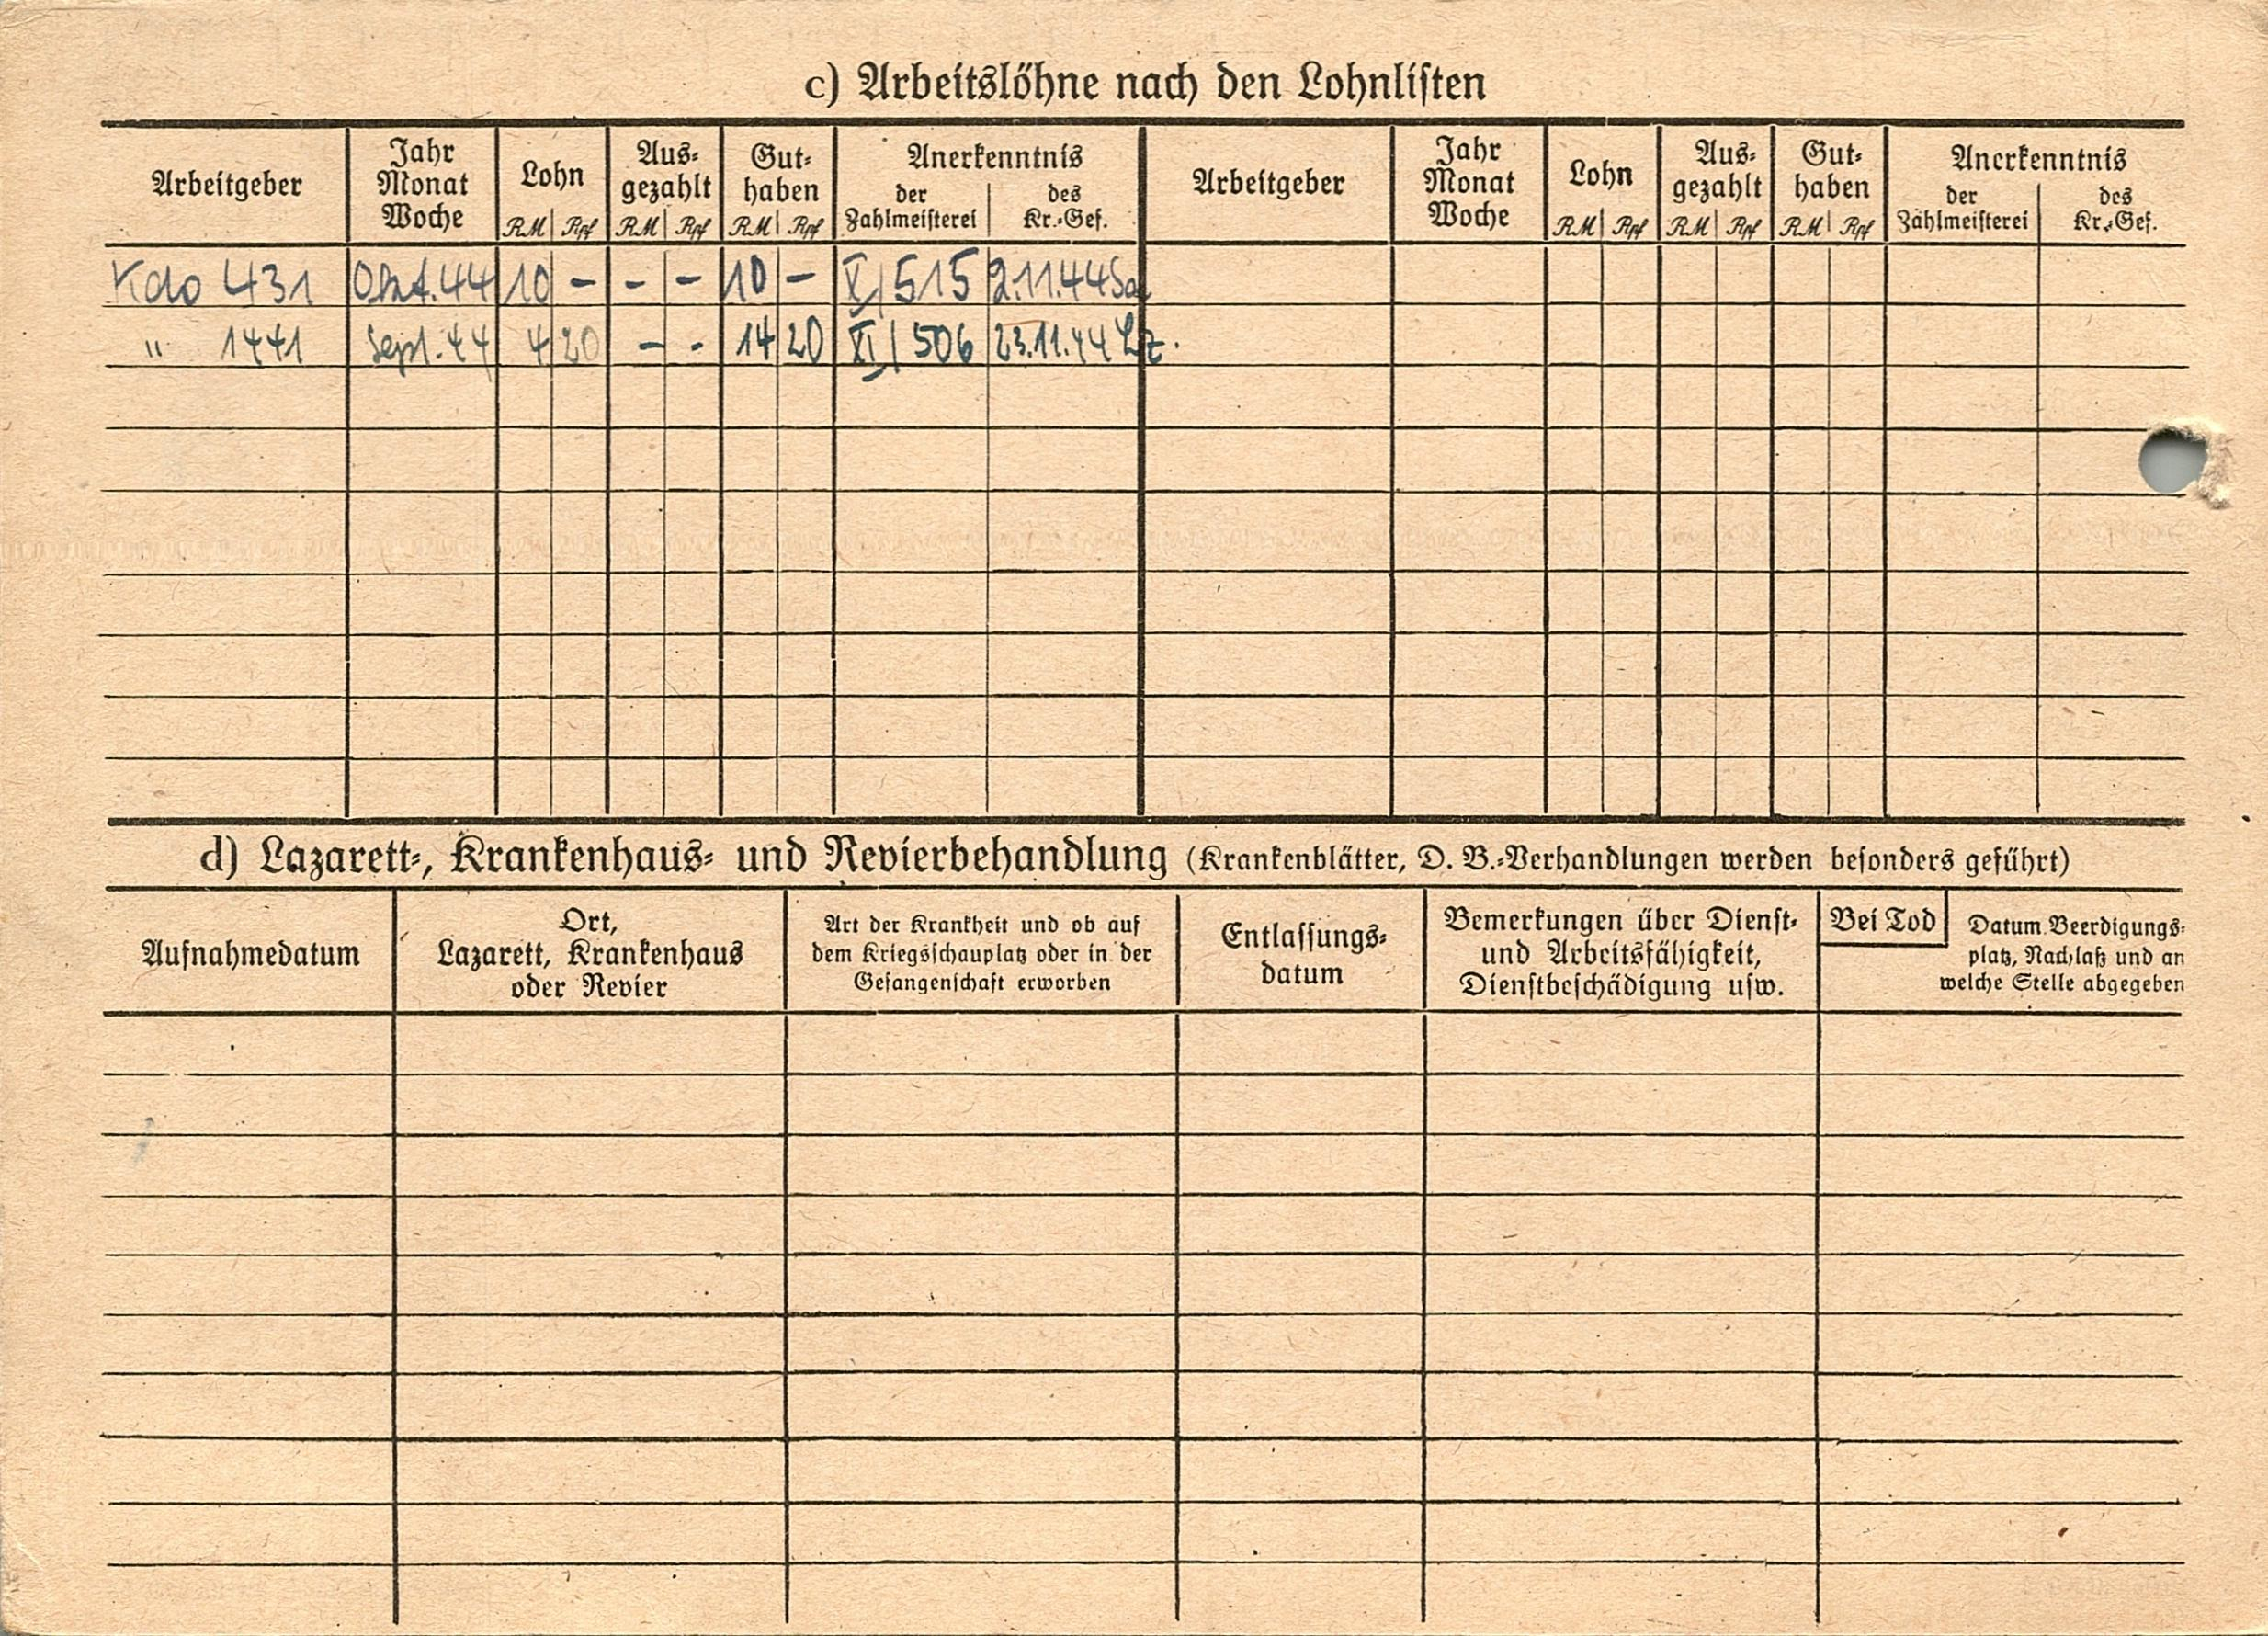 c) Arbeitslöhne nach den Lohnlisten
Arbeitgeber
Jahr
Monat
Woche
Lohn
RM Rpf
Aus-
gezahlt
RM Rpf
Gut-
haben
RM Rpf
Anerkenntnis
der
Zahlmeisterei
des
Kr.-Gef.
Arbeitgeber
Jahr
Monat
Woche
Lohn
RM Rpf
Aus-
gezahlt
RM Rpf
Gut-
haben
RM Rpf
Anerkenntnis
der
Zahlmeisterei
des
Kr.-Gef.
Kdo 431 Okt. 44 10 - - - 10 - X/515 2.11.44
" 1441 Sept. 44 4 20 - - 14 20 XI/506 23.11.44
d) Lazarett-, Krankenhaus- und Revierbehandlung (Krankenblätter, D. B.-Verhandlungen werden besonders geführt)
Aufnahmedatum
Ort,
Lazarett, Krankenhaus
oder Revier
Art der Krankheit und ob auf
dem Kriegsschauplatz oder in der
Gefangenschaft erworben
Entlassungs-
datum
Bemerkungen über Dienst-
und Arbeitsfähigkeit,
Dienstbeschädigung usw.
Bei Tod
Datum, Beerdigungs-
platz, Nachlaß und an
welche Stelle abgegeben